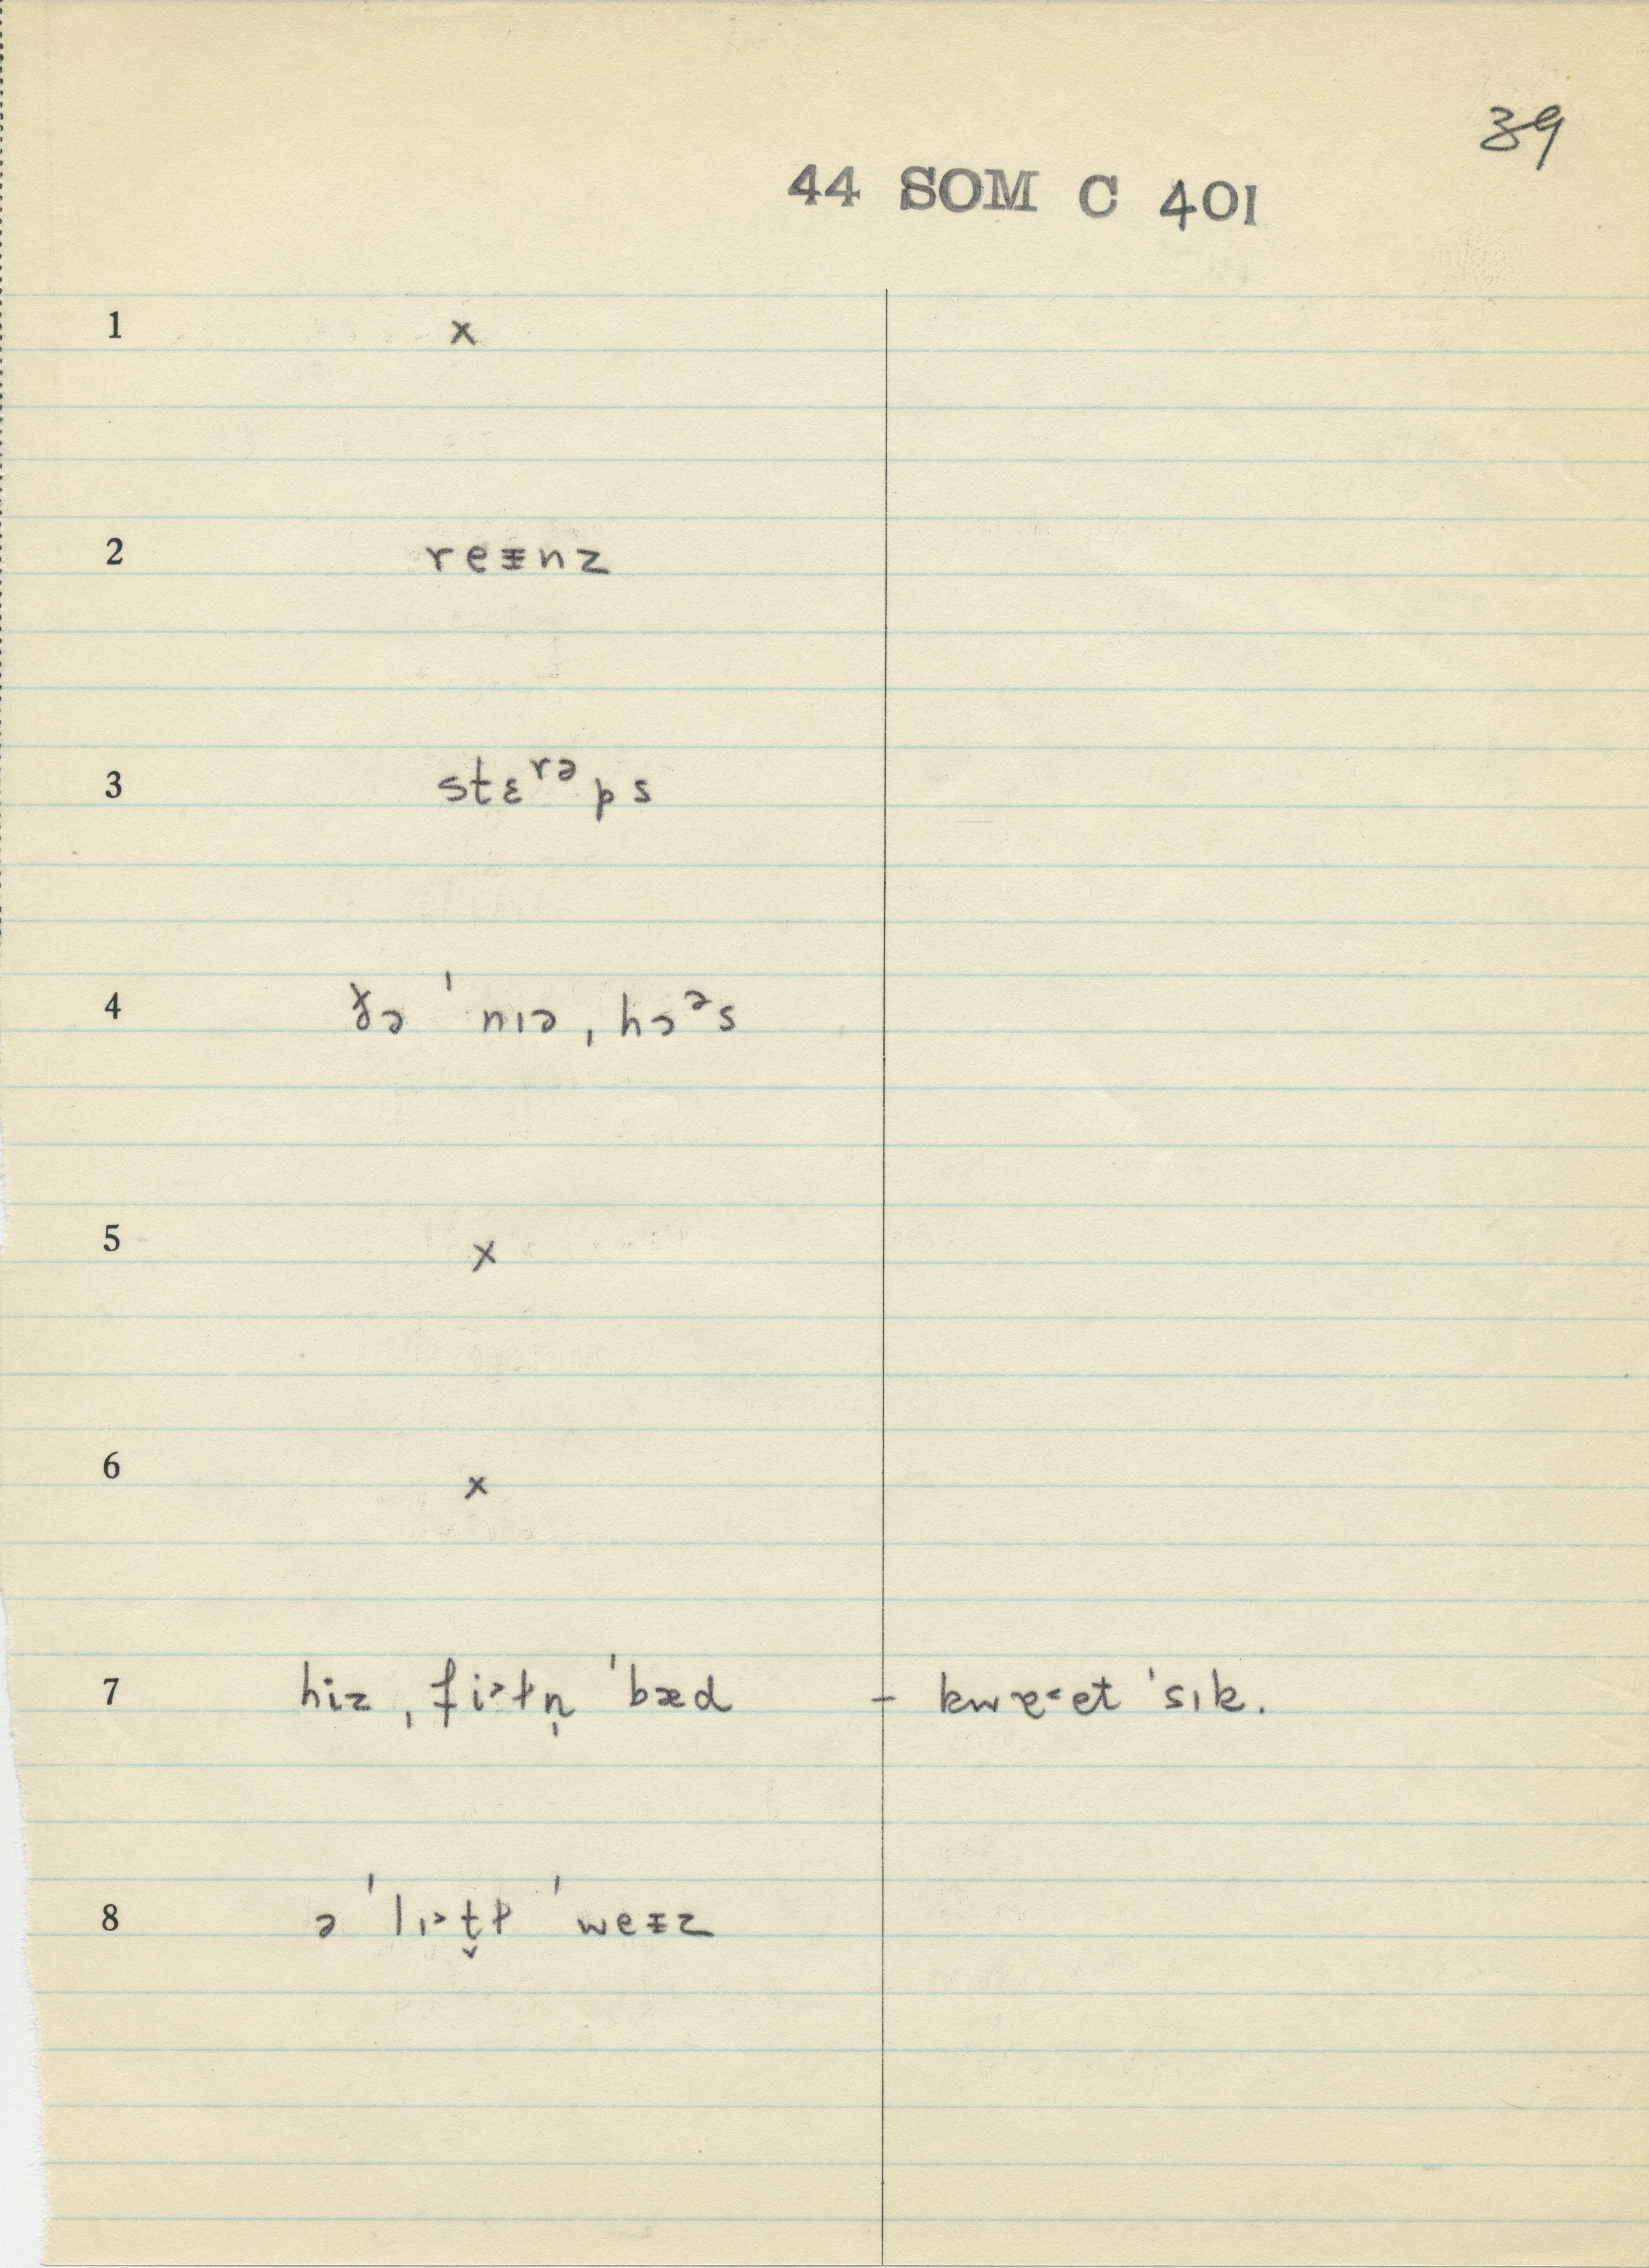 39
44 SOM C 401
1 x
2 reᵻnz
3 stɛʳᵊps
4 ɣə ˈnɪə ˌhɔᵊs
5 x
6 x
7 hiz ˌfi˃ɫn̩ ˈbæd – kwɐ˂et ˈsɪk.
8 ə ˈlɪ˃t̬ɫ ˈweᵻz